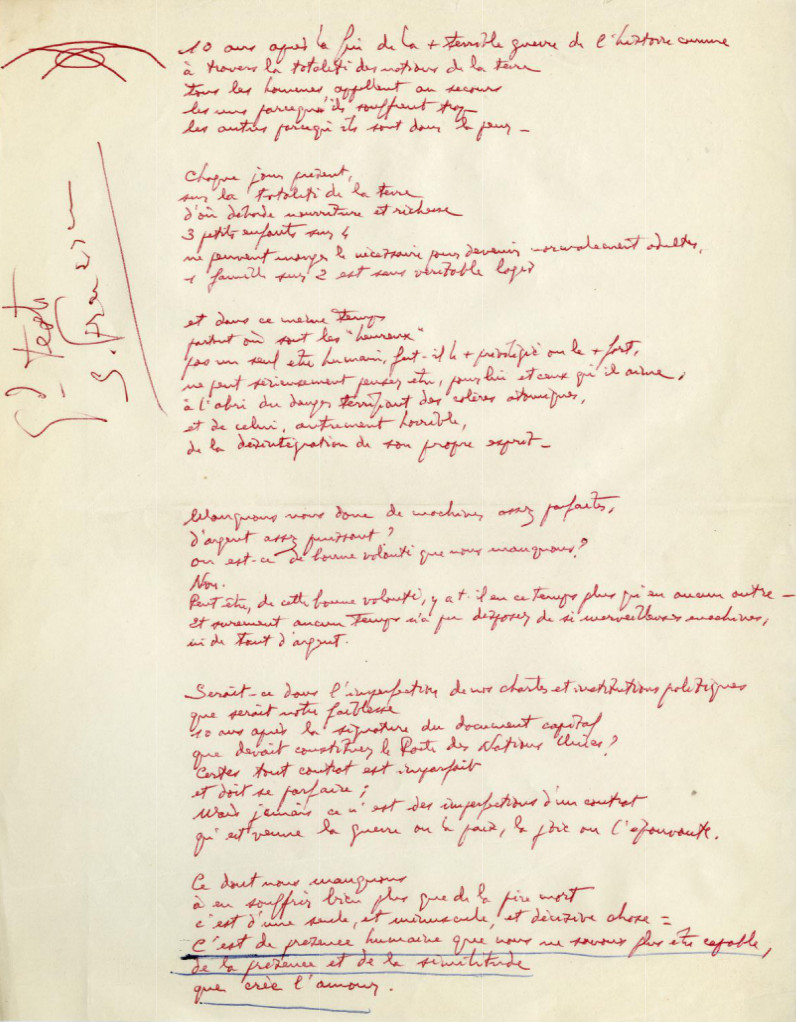 10 ans après la fin de la + terrible guerre de l'histoire connue
à travers la totalité des nations de la terre
tous les hommes appellent au secours
les uns parcequ'ils souffrent trop
les autres parcequ'ils sont dans la peur _
Chaque jour présent,
sur la totalité de la terre
d'où déborde nourriture et richesse
3 petits enfants sur 4
ne peuvent manger le nécessaire pour devenir normalement adultes,
1 famille sur 2 est sans véritable logis
et dans ce même temps
partout où sont les "heureux"
pas un seul être humain, fut-il le + privilégié ou le + fort,
ne peut sérieusement penser être, pour lui et ceux qu'il aime,
à l'abri du danger terrifiant des colères atomiques,
et de celui, autrement horrible,
de la désintégration de son propre esprit _
Manquons nous donc de machines assez parfaites,
d'argent assez puissant?
ou est-ce de bonne volonté que nous manquons?
Non.
Peut être, de cette bonne volonté, y a t-il en ce temps plus qu'en aucun autre _
et surement aucun temps n'a pu disposer de si merveilleuses machines,
ni de tant d'argent.
Serait-ce dans l'imperfection de nos chartes et institutions politiques
que serait notre faiblesse
10 ans après la signature du document capital
que devait constituer le Pacte des Nations Unies?
Certes tout contrat est imparfait
et doit se parfaire;
mais jamais ce n'est des imperfections d'un contrat
qu'est venue la guerre ou la paix, la joie ou l'épouvante.
Ce dont nous manquons
à en souffrir bien plus que de la pire mort
c'est d'une seule, et minuscule, et décisive chose =
C'est de présence humaine que nous ne savons plus être capable,
de la présence et de la similitude
que crée l'amour.